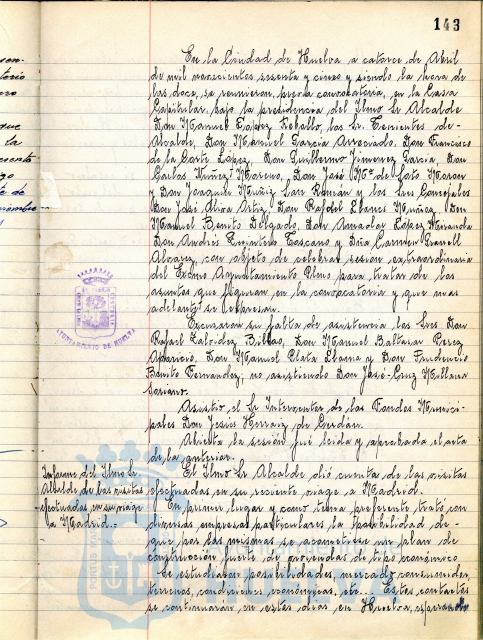 143
En la Ciudad de Huelva a catorce de Abril
de mil novecientos sesenta y cinco y siendo la hora de
las doce, se reunieron, previa convocatoria, en la Casa
Capitular, bajo la presidencia del Ilmo Sr Alcalde
Don Manuel López Rebollo, los Sres. Tenientes de-
Alcalde, Don Manuel García Arrocado, Don Francisco
de la Corte López, Don Guillermo Jimenez García, Don
Carlos Nuñez Moreno, Don José Mª de Soto Moron
y Don Joaquin Muñiz San Román y los Sres Concejales
Don José Oliva Ortiz, Don Rafael Llanes Muñoz, Don
Manuel Benito Delgado, Don Amador López Miranda
Don Andrés Toscano y Dña Carmen
Alvarez, con objeto de celebrar sesión extraordinaria
del Excmo Ayuntamiento Pleno para tratar de los
asuntos que figuran en la convocatoria y que mas
adelante se expresan.
Excusaron su falta de asistencia los Sres Don
Rafael Zalvidez Bilbao, Don Manuel Baltasar Perez
Aparicio, Don Manuel Plata Llanna y Don Prudencio
Benito Fernandez; no asistiendo Don José-Cruz Millana
Soriano.
Asistió el Sr Interventor de los Fondos Munici-
pales Don Jesús Herraiz de
Abierta la sesión fué leida y aprobada el acta
de la anterior.
Informe del Ilmo Sr
Alcalde de las visitas
efectuadas en su viaje
a Madrid.-
El Ilmo Sr Alcalde dió cuenta de las visitas
efectuadas en su reciente viaje a Madrid.
En primer lugar y como tema preferente trató con
diversas empresas particulares la posibilidad de-
que por las mismas se acometiese un plan de
construcción de viviendas de tipo económico
Se estudiaron posibilidades, mercado consumidor,
terrenos, condiciones económicas, etc... Estos contactos
se continuarán en estos dias en Huelva, esperando
AYUNTAMIENTO DE HUELVA